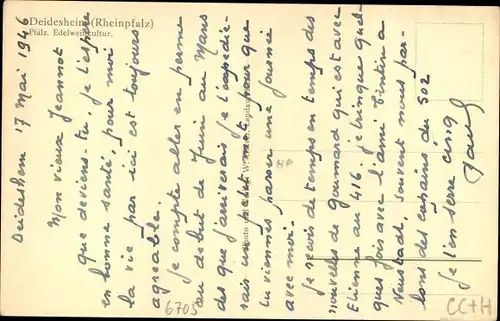 Deidesheim (Rheinpfalz)
Pfälz. Edelweinkultur.
Deidesheim 17 Mai 1946
Mon vieux Jeannot
que deviens-tu, je l'espère
en bonne santé, pour moi
la vie par ici est toujours
agréable.
Je compte aller en perme
au début de Juin au Mans
dès que j'arriverais je t'expédie-
rais un petit mot pour que
tu viennes passer une journée
avec moi.
Je reçois de temps en temps des
nouvelles de Goumard qui est avec
Etienne au 416. je trinque quel-
ques fois avec l'ami Tintin à
Neustadt, souvent nous par-
lons des copains du 502
Je t'en serre cinq
6705
CC+H